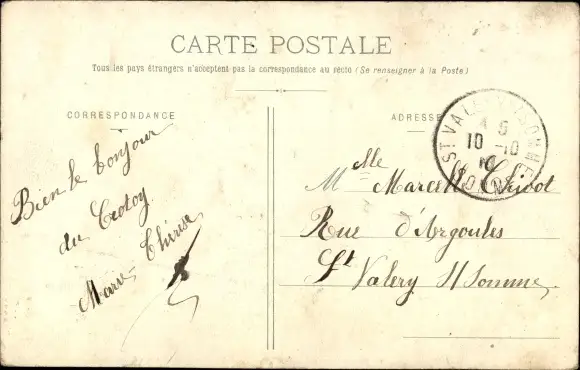 CARTE POSTALE
Tous les pays étrangers n'acceptent pas la correspondance au recto (Se renseigner à la Poste)
CORRESPONDANCE
ADRESSE
Bien le bonjour
du Crotoy
Marie Thérèse
Mlle Marcelle
Rue d'Argoules
St Valery s/ Somme
ST VALERY S SOMME
10 -10
10
SOMME